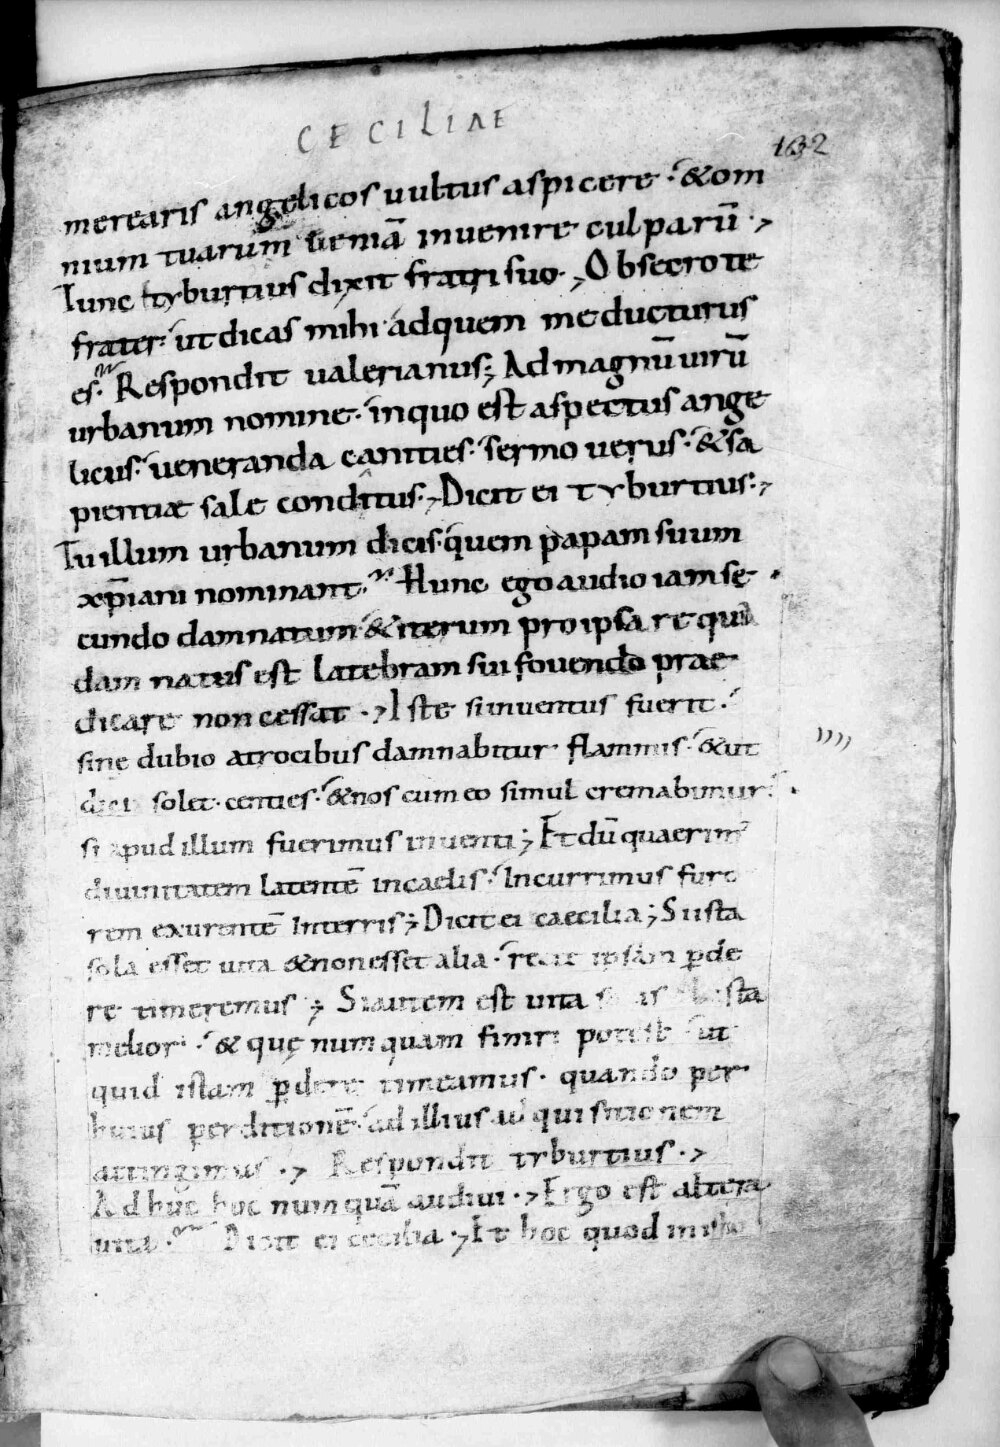 CECILIAE
132
merearis angelicos uultus aspicere · & om
nium tuarum ueniā inuenire culparū ·,
Tunc tyburtius dixit fratri suo ·, Obsecro te
frater · ut dicas mihi ad quem me ducturus
es · Respondit ualerianus ; Ad magnū uirū
urbanum nomine · in quo est aspectus ange
licus · ueneranda canities · sermo uerus · & sa
pientiæ sale conditus ·, Dicit ei tyburtius ·,
Tu illum urbanum dicis · quem papam suum
xp̄iani nominant · Hunc ego audio iam se
cundo damnatum · & iterum pro ipsa re qua
dam natus est latebram sui fouendo prae
dicare non cessat ·, Iste si inuentus fuerit ·
sine dubio atrocibus damnabitur flammis · & ut
dici solet · centies · & nos cum eo simul cremabimur ·
si apud illum fuerimus inuenti ; Et dū quaerim'
diuinitatem latentē in caelis · Incurrimus furo
rem exurentē in terris ; Dicit ei caecilia ; Si ista
sola esset uita & non esset alia · recte ipsam ꝑde
re timeremus ; Si autem est uita ista
melior · & quę numquam finiri potest · ut
quid istam ꝑdere timeamus · quando per
huius perditionē · ad illius adquisitionem
attingimus ·, Respondit tyburtius ·,
Ad huc hoc numquā audiui ·, Ergo est altera
uita · Dicit ei cecilia ·, Et hoc quod in